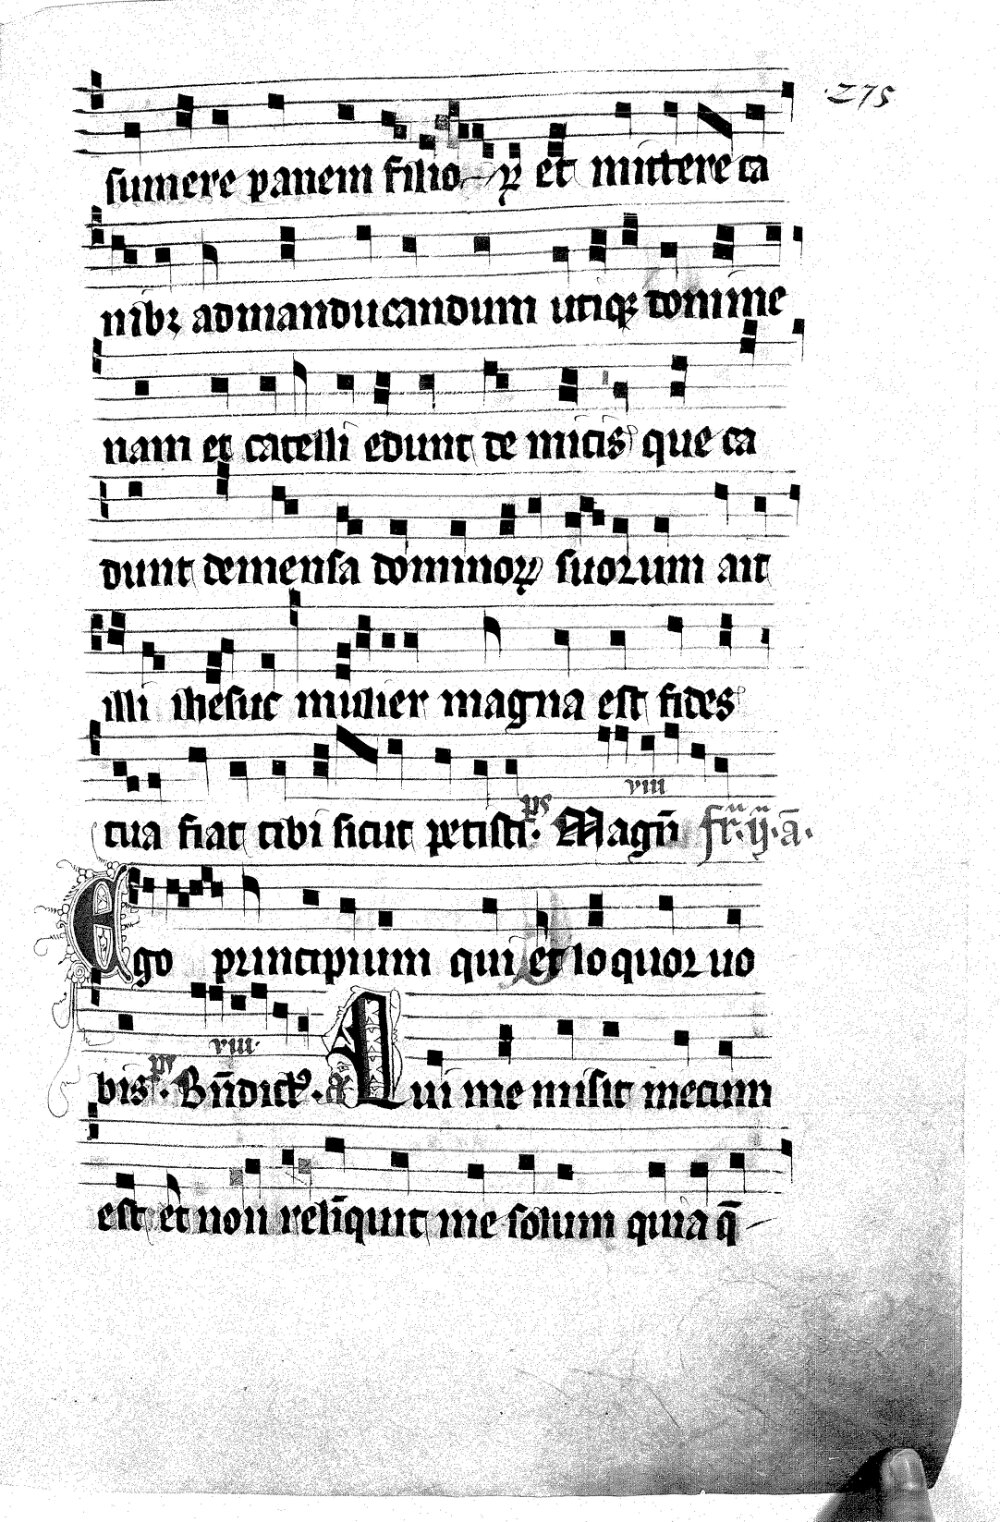 275
sumere panem filioꝝ et mittere ca
nibꝫ ad manducandum utiqꝫ domine
nam et catelli edunt de micis que ca
dunt de mensa dominoꝝ suorum ait
illi ihesuc mulier magna est fides
viii
tua fiat tibi sicut petisti. ps Magn̄ fr̄. ij. a̅.
Ego principium qui et loquor uo
viii.
bis. ps Bn̄dictꝰ. a Qui me misit mecum
est et non reliq̄uit me solum quia q̄